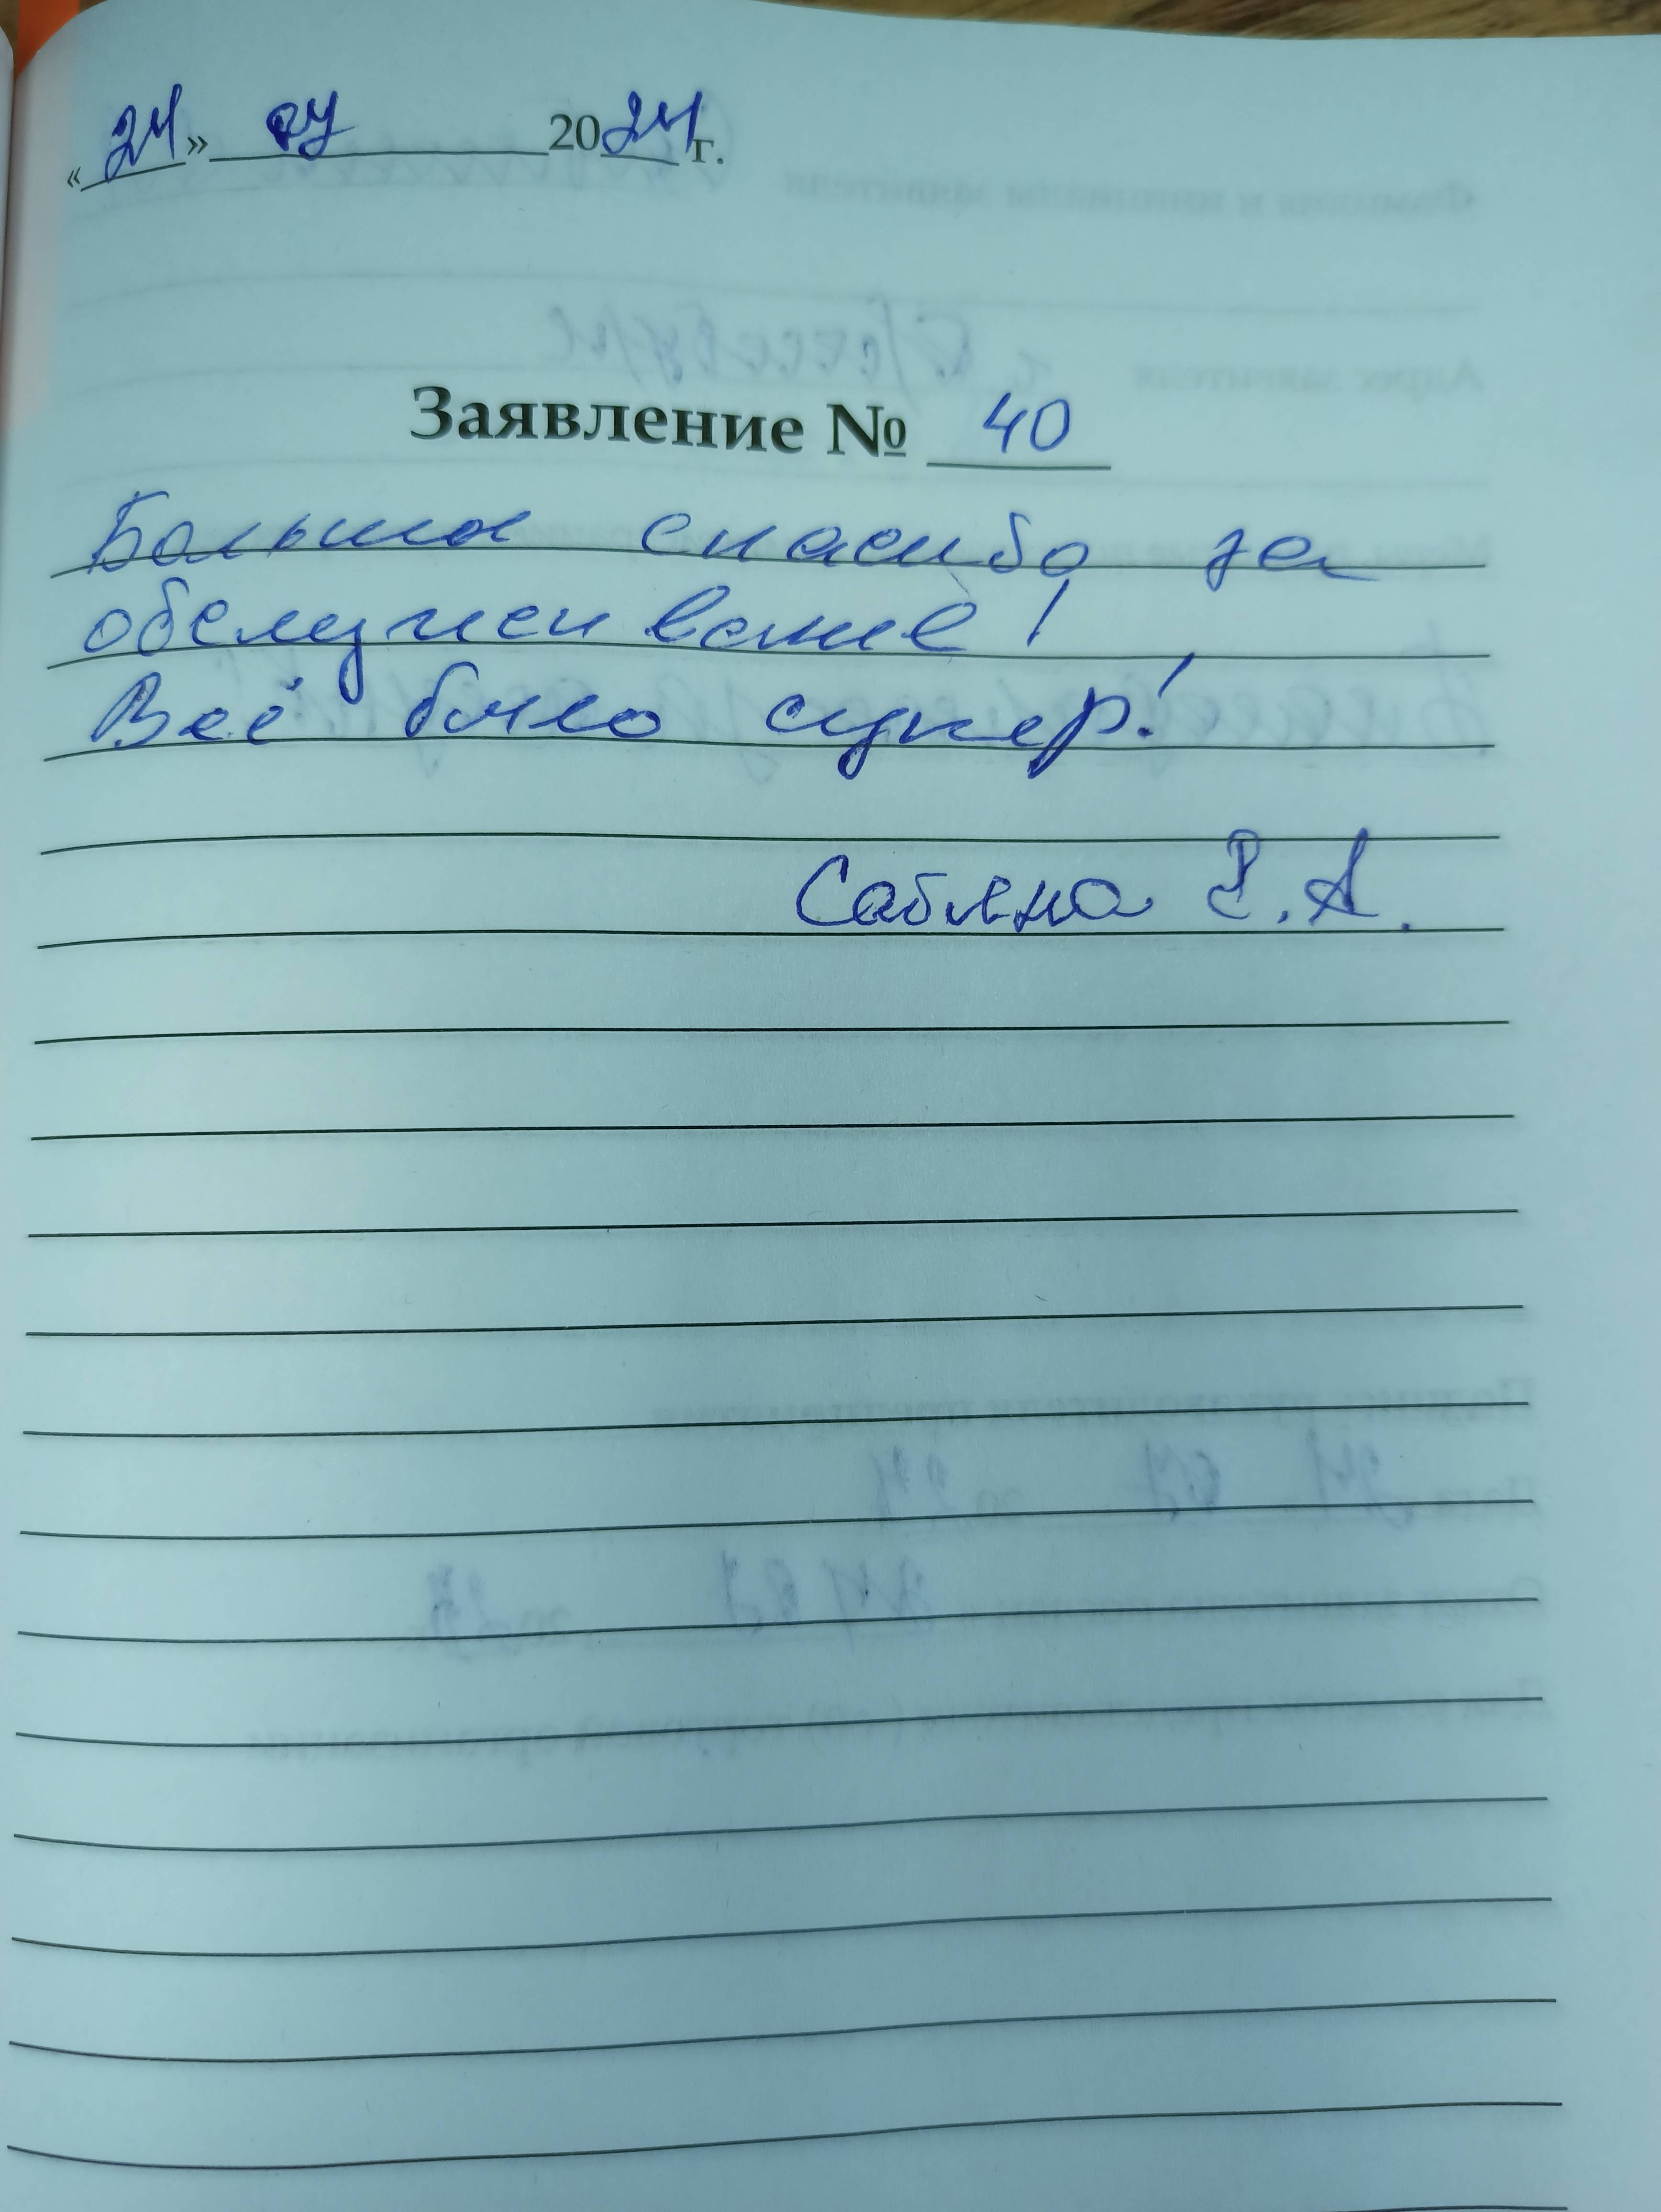 «24» 07 2024 г.
Заявление № 40
Большое спасибо за
обслуживание!
Всё было супер!
Р.А.